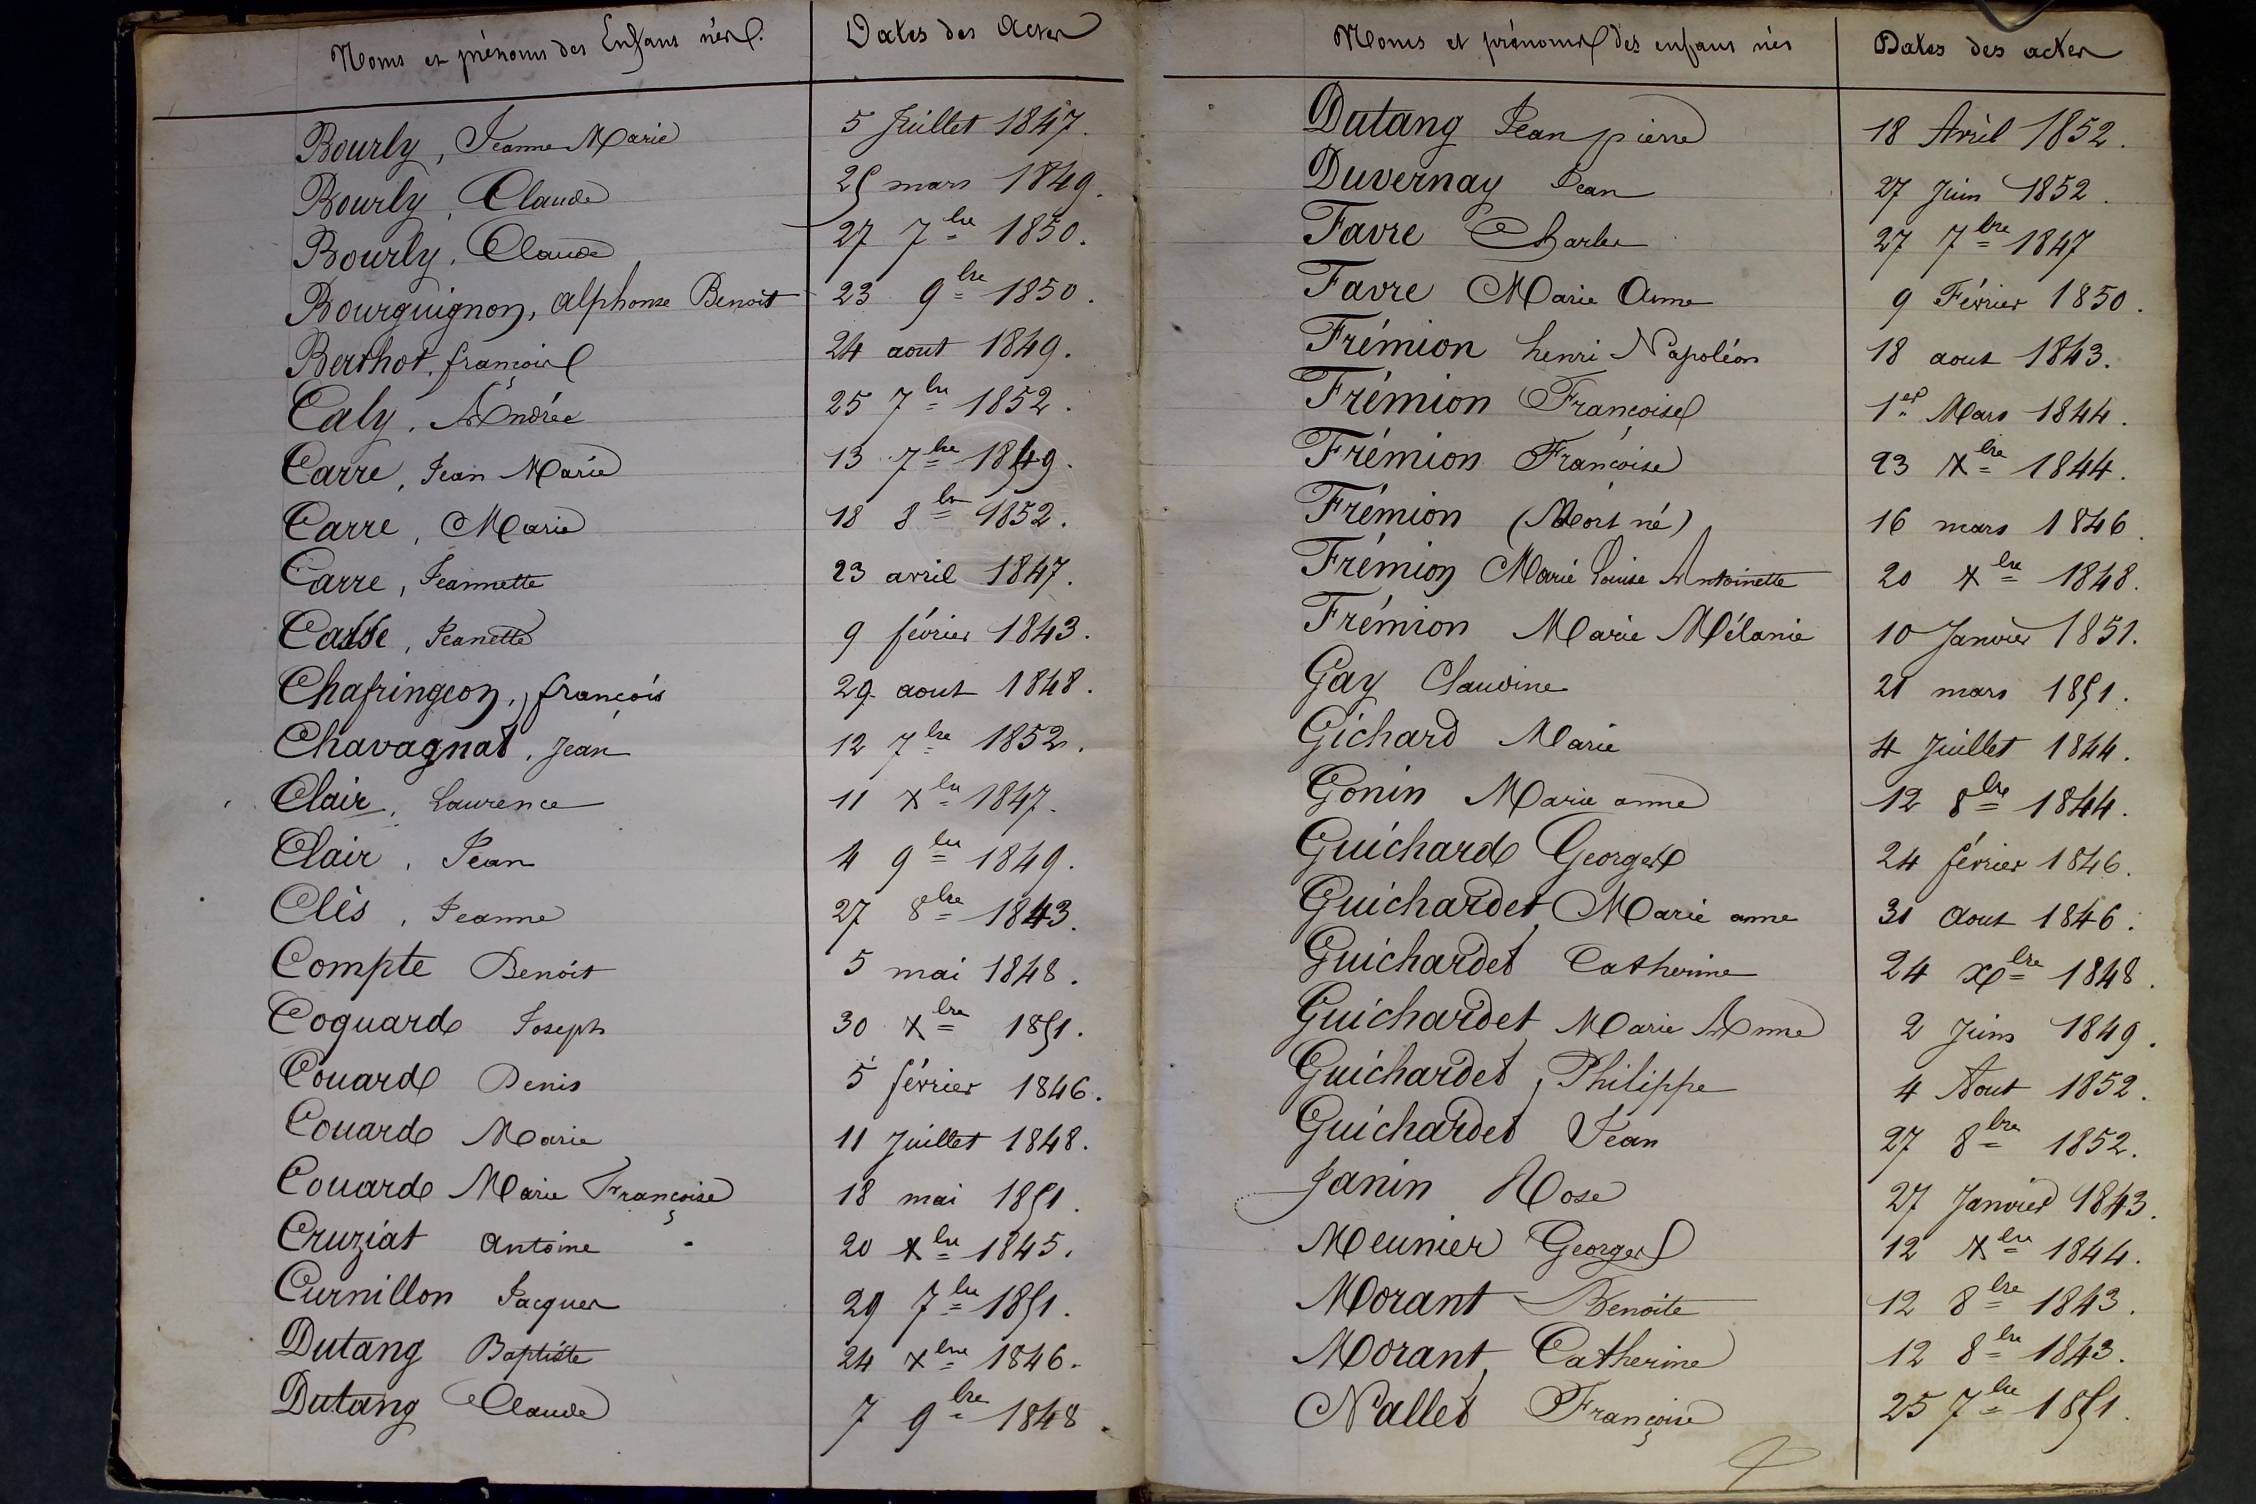 Noms et prénoms des Enfans nés. Dates des Actes
Bourly, Jeanne Marie 5 Juillet 1847.
Bourly, Claude 25 mars 1849.
Bourly, Claude 27 7bre 1850.
Bourguignon, Alphonse Benoit 23 9bre 1850.
Berthot, françois 24 aout 1849.
Caly, Andrée 25 7bre 1852.
Carre, Jean Marie 13 7bre 1849.
Carre, Marie 18 8bre 1852.
Carre, Jeannette 23 avril 1847.
Jeanette 9 février 1843.
Chafringeon, françois 29 aout 1848.
Chavagnat, Jean 12 7bre 1852.
Clair, Laurence 11 Xbre 1847.
Clair, Jean 4 9bre 1849.
Clès, Jeanne 27 8bre 1843.
Compte Benoit 5 mai 1848.
Coquard Joseph 30 Xbre 1851.
Couard Denis 5 février 1846.
Couard Marie 11 Juillet 1848.
Couard Marie Françoise 18 mai 1851.
Cruziat Antoine 20 Xbre 1845.
Curnillon Jacques 29 7bre 1851.
Dutang Baptiste 24 Xbre 1846.
Dutang Claude 7 9bre 1848.
Noms et prénoms des enfans nés Dates des actes
Dutang Jean pierre 18 Avril 1852.
Duvernay Jean 27 Juin 1852.
Favre Charles 27 7bre 1847
Favre Marie Anne 9 Février 1850.
Frémion henri Napoléon 18 aout 1843.
Frémion Françoise 1er Mars 1844.
Frémion Françoise 23 Xbre 1844.
Frémion (Mort né) 16 mars 1846.
Frémion Marie Louise Antoinette 20 Xbre 1848.
Frémion Marie Mélanie 10 Janvier 1851.
Gay Claudine 21 mars 1851.
Gichard Marie 4 Juillet 1844.
Gonin Marie anne 12 8bre 1844.
Guichard Georges 24 février 1846.
Guichardet Marie anne 31 Aout 1846.
Guichardet Catherine 24 Xbre 1848.
Guichardet Marie Anne 2 Juin 1849.
Guichardet, Philippe 4 Aout 1852.
Guichardet Jean 27 8bre 1852.
Janin Rose 27 Janvier 1843.
Meunier Georges 12 Xbre 1844.
Morant Benoite 12 8bre 1843.
Morant, Catherine 12 8bre 1843.
Nallet Françoise 25 7bre 1851.